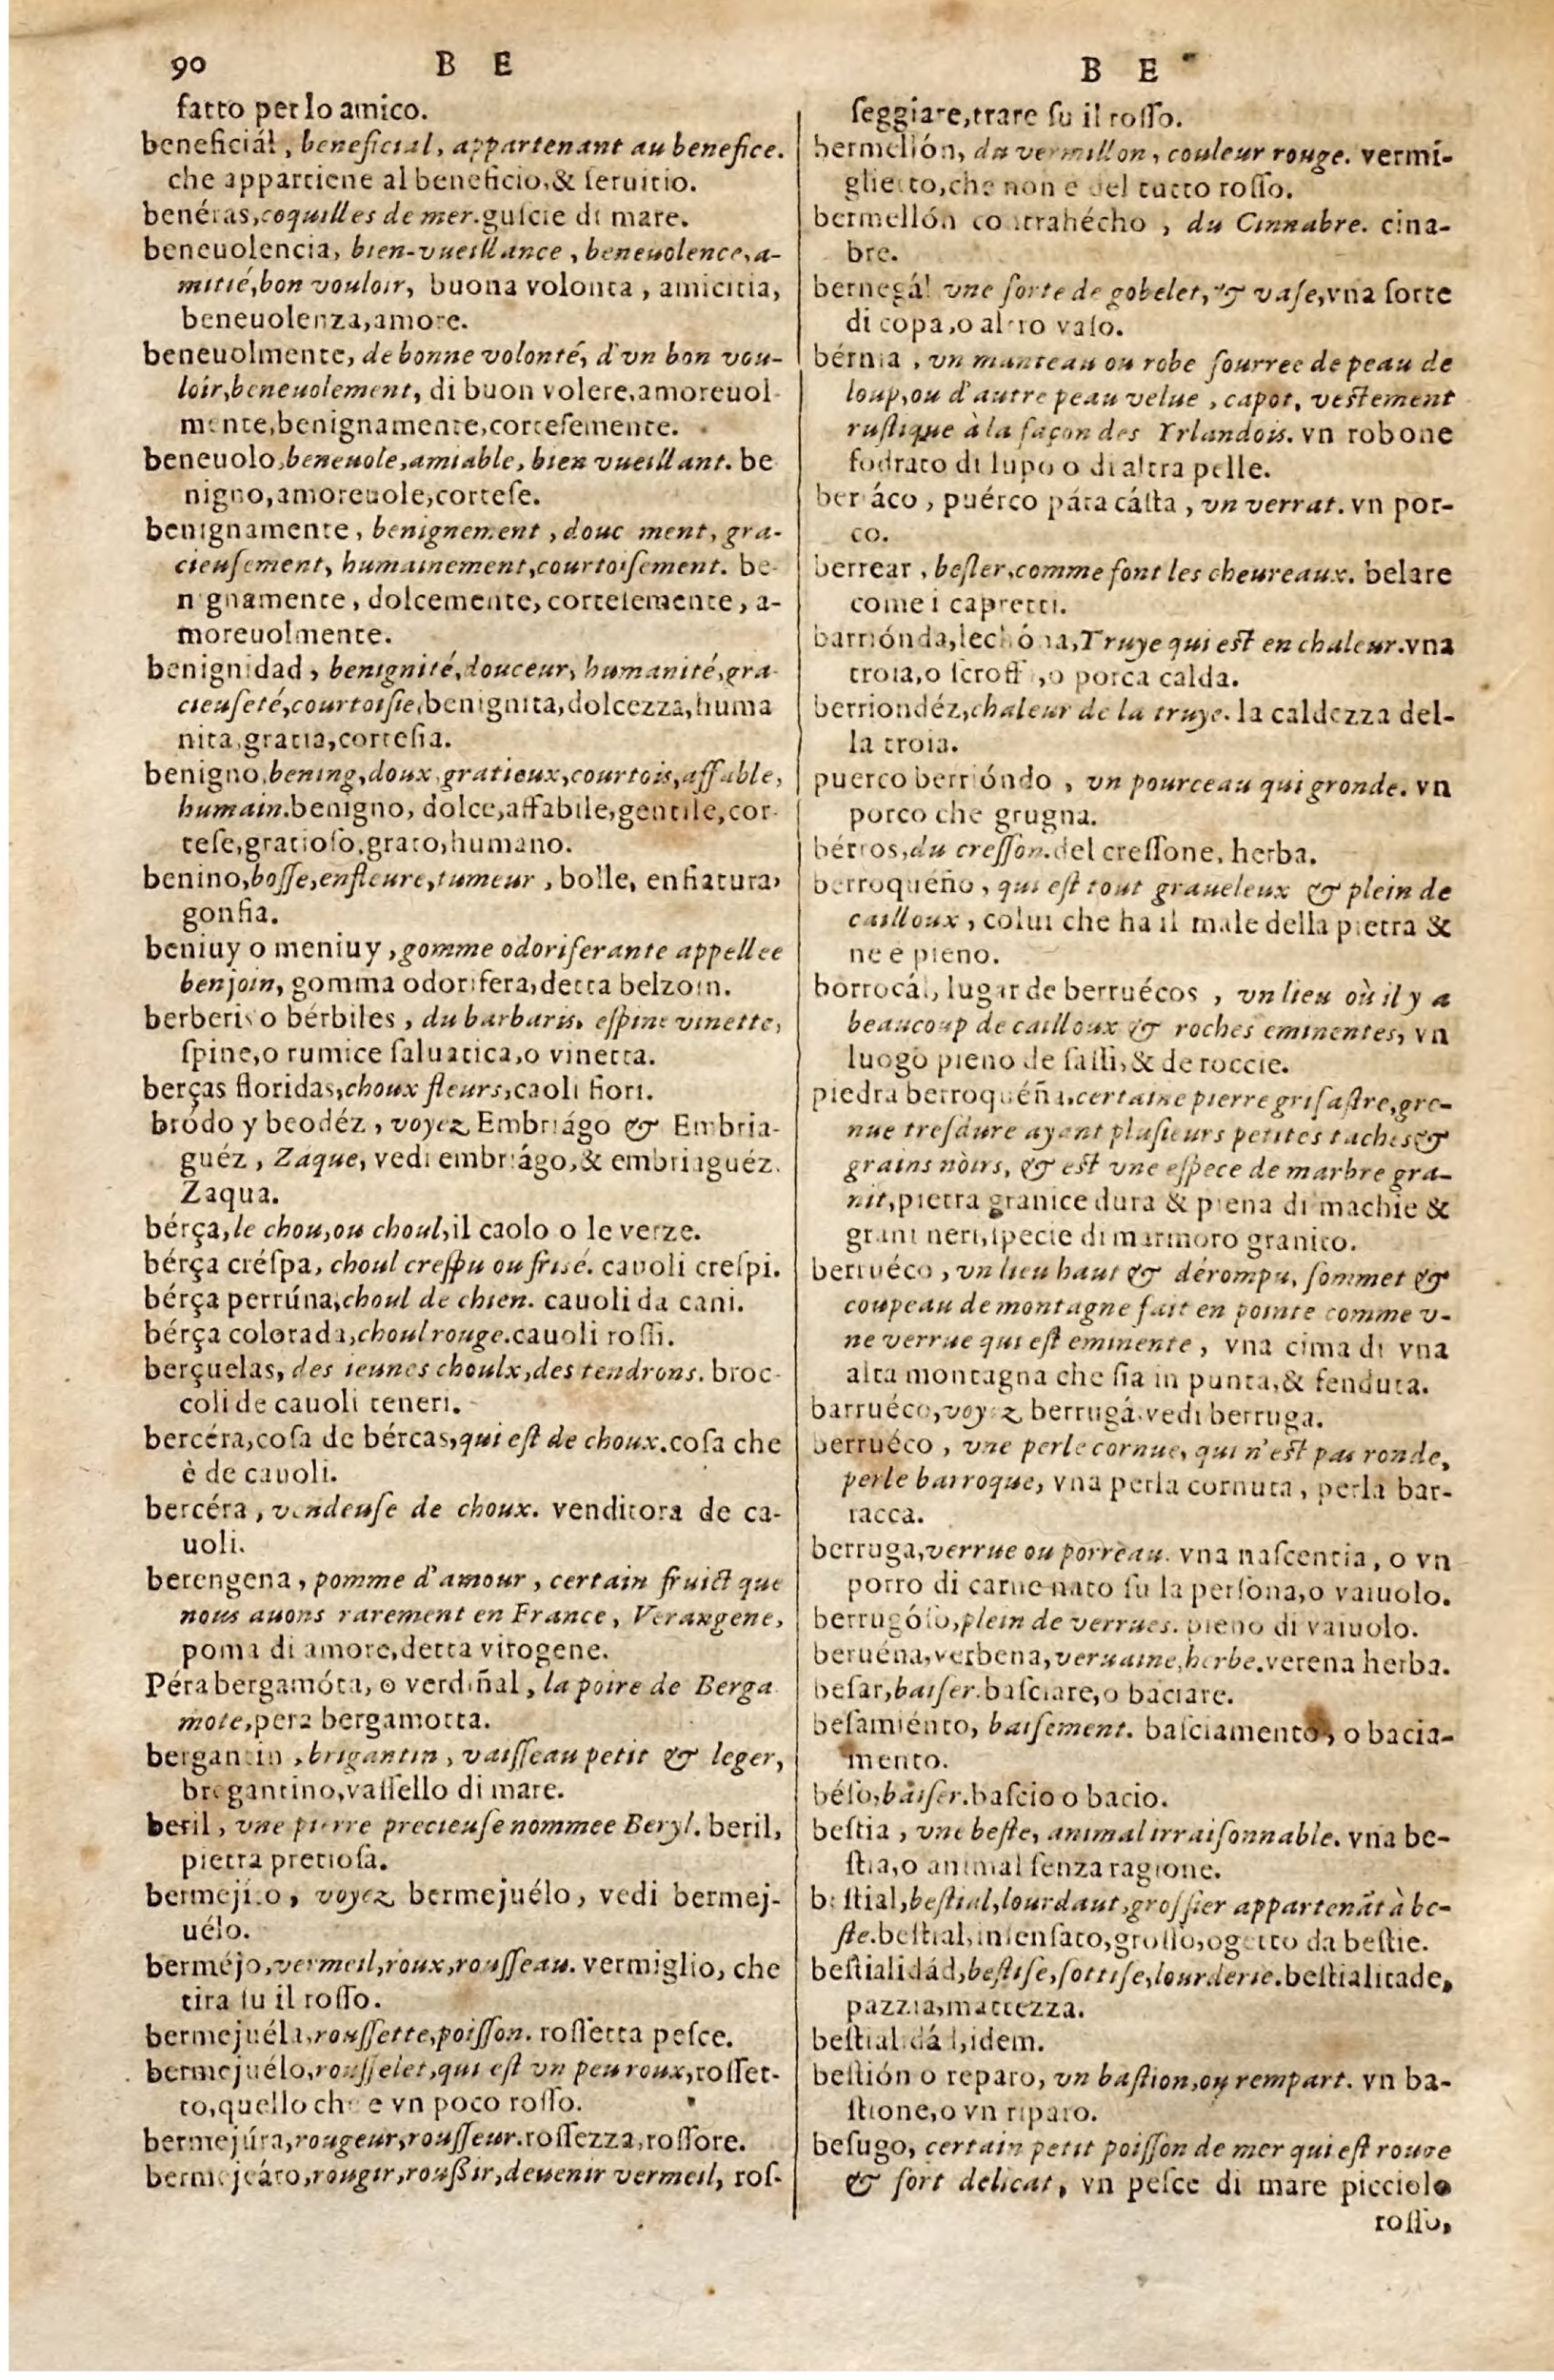 90 B E
fatto per lo amico.
beneficiál, beneficial, appartenant au benefice.
che appartiene al beneficio,& ſeruitio.
benéras,coquilles de mer.guſcie di mare.
beneuolencia, bien-vueillance, beneuolence, a-
mitié,bon vouloir, buona volonta, amicitia,
beneuolenza,amore.
beneuolmente, de bonne volonté, d'vn bon vou-
loir,beneuolement, di buon volere,amoreuol-
mente,benignamente,corteſemente.
beneuolo,beneuole,amiable, bien vueillant. be
nigno,amoreuole,corteſe.
benignamente, benignement, doucement, gra-
cieuſement, humainement,courtoiſement. be-
nignamente, dolcemente, corteſemente, a-
moreuolmente.
benignidad, benignité,douceur, humanité,gra-
cieuſeté,courtoiſie,benignita,dolcezza,huma
nita,gratia,corteſia.
benigno,bening,doux,gratieux,courtois,affable,
humain.benigno, dolce,affabile,gentile,cor-
teſe,gratioſo,grato,humano.
benino,boſſe,enfleure,tumeur, bolle, enfiatura,
gonfia.
beniuy o meniuy,gomme odoriferante appellee
benjoin, gomma odorifera,detta belzoin.
berberis o bérbiles, du barbaris, eſpine vinette,
ſpine,o rumice ſaluatica,o vinetta.
berças floridas,choux fleurs,caoli fiori.
bródo y beodéz, voyez Embriágo & Embria-
guéz, Zaque, vedi embriágo,& embriaguéz.
Zaqua.
bérça,le chou,ou choul,il caolo o le verze.
bérça créſpa, choul creſpu ou friſé. cauoli creſpi.
bérça perrúna,choul de chien. cauoli da cani.
bérça colorada,choul rouge.cauoli roſſi.
berçuelas, des ieunes choulx,des tendrons. broc-
coli de cauoli teneri.
bercéra,coſa de bércas,qui eſt de choux.coſa che
è de cauoli.
bercéra, vendeuſe de choux. venditora de ca-
uoli.
berengena, pomme d'amour, certain fruict que
nous auons rarement en France, Verangene,
poma di amore,detta vitogene.
Péra bergamóta, o verdiñal, la poire de Berga
mote,pera bergamotta.
bergantin,brigantin, vaiſſeau petit & leger,
bregantino,vaſſello di mare.
beril, vne pierre precieuſe nommee Beryl. beril,
pietra pretioſa.
bermejizo, voyez bermejuélo, vedi bermej-
uélo.
berméjo,vermeil,roux,rouſſeau. vermiglio, che
tira ſu il roſſo.
bermejuéla,rouſſette,poiſſon. roſſetta peſce.
bermejuélo,rouſſelet,qui eſt vn peu roux,roſſet-
to,quello che e vn poco roſſo.
bermejúra,rougeur,rouſſeur.roſſezza,roſſore.
bermejeáro,rougir,rouſſir,deuenir vermeil, roſ-
B E
ſeggiare,trare ſu il roſſo.
bermellón, du vermillon, couleur rouge. vermi-
glietto,che non e del tutto roſſo.
bermellón contrahécho, du Cinnabre. cina-
bre.
bernegál vne ſorte de gobelet, & vaſe,vna ſorte
di copa,o altro vaſo.
bérnia, vn manteau ou robe fourree de peau de
loup,ou d'autre peau velue, capot, veſtement
ruſtique à la façon des Yrlandois. vn robone
fodrato di lupo o di altra pelle.
berráco, puérco pára cáſta, vn verrat. vn por-
co.
berrear, beſler,comme font les cheureaux. belare
come i capretti.
barriónda,lechóna,Truye qui eſt en chaleur.vna
troia,o ſcroffa,o porca calda.
berriondéz,chaleur de la truye. la caldezza del-
la troia.
puerco berrióndo, vn pourceau qui gronde. vn
porco che grugna.
bérros,du creſſon.del creſſone, herba.
berroqueño, qui eſt tout graueleux & plein de
cailloux, colui che ha il male della pietra &
ne e pieno.
borrocál, lugar de berruécos, vn lieu où il y a
beaucoup de cailloux & roches eminentes, vn
luogo pieno de ſaſſi,& de roccie.
piedra berroquéña,certaine pierre griſaſtre,gre-
nue treſdure ayant pluſieurs petites taches &
grains noirs, & eſt vne eſpece de marbre gra-
nit,pietra granice dura & piena di machie &
grani neri,ſpecie di marmoro granito.
berruéco, vn lieu haut & dérompu, ſommet &
coupeau de montagne fait en pointe comme v-
ne verrue qui eſt eminente, vna cima di vna
alta montagna che ſia in punta,& fenduta.
barruéco,voyez berrugá.vedi berruga.
berruéco, vne perle cornue, qui n'eſt pas ronde,
perle barroque, vna perla cornuta, perla bar-
racca.
berruga,verrue ou porreau. vna naſcentia, o vn
porro di carne nato ſu la perſona,o vaiuolo.
berrugóſo,plein de verrues. pieno di vaiuolo.
beruéna,verbena,veruaine,herbe.verena herba.
beſar,baiſer.baſciare,o baciare.
beſamiénto, baiſement. baſciamento, o bacia-
mento.
béſo,baiſer.baſcio o bacio.
beſtia, vne beſte, animal irraiſonnable. vna be-
ſtia,o animal ſenza ragione.
beſtial,beſtial,lourdaut,groſſier appartenãt à be-
ſte.beſtial,inſenſato,groſſo,ogetto da beſtie.
beſtialidád,beſtiſe,ſottiſe,lourderie.beſtialitade,
pazzia,mattezza.
beſtialidád,idem.
beſtión o reparo, vn baſtion,ou rempart. vn ba-
ſtione,o vn riparo.
beſugo, certain petit poiſſon de mer qui eſt rouge
& fort delicat, vn peſce di mare picciolo
roſſo,